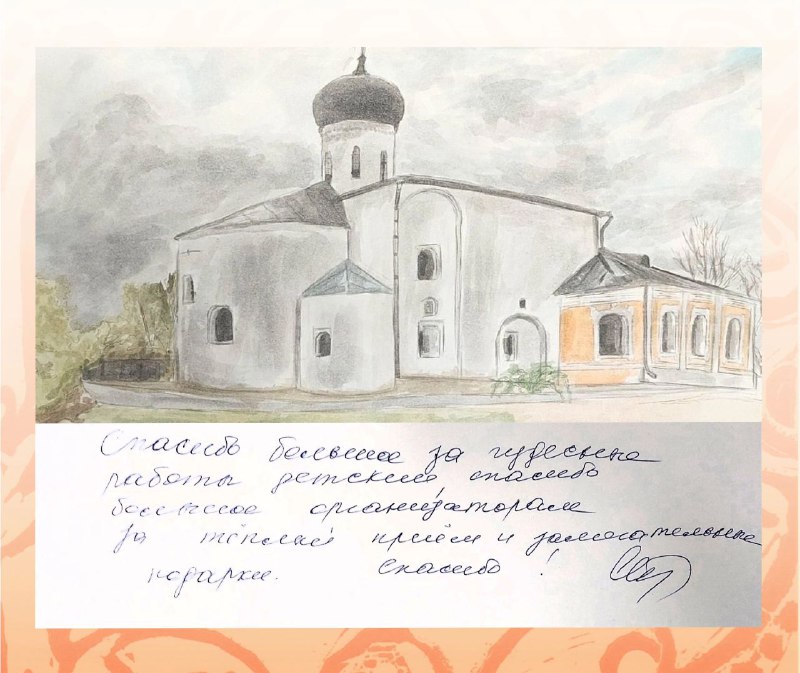 Спасибо большое за чудесные
работы детские, спасибо
большое организаторам
за тёплый приём и замечательные
подарки. Спасибо!